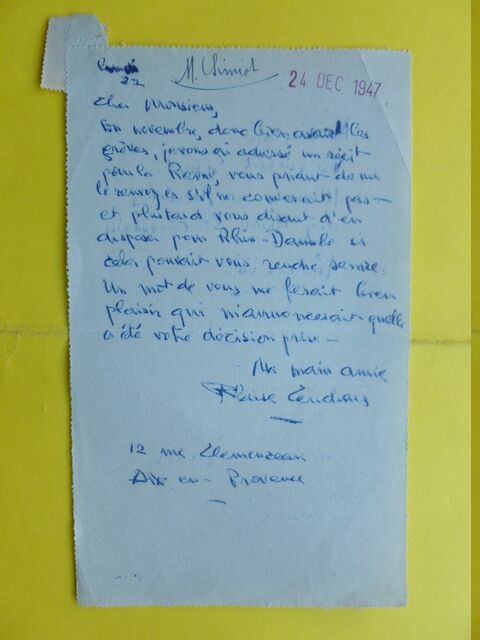 Lundi
22
24 DEC 1947
Cher Monsieur,
En novembre, donc bien avant les
grèves, je vous ai adressé un récit
pour la Revue, vous priant de me
le renvoyer s'il ne convenait pas —
et plus tard vous disant d'en
disposer pour Rhin-Danube si
cela pouvait vous rendre service.
Un mot de vous me ferait bien
plaisir qui m'annoncerait quelle
a été votre décision prise —
Ma main amie
12 rue Clemenceau
Aix en - Provence